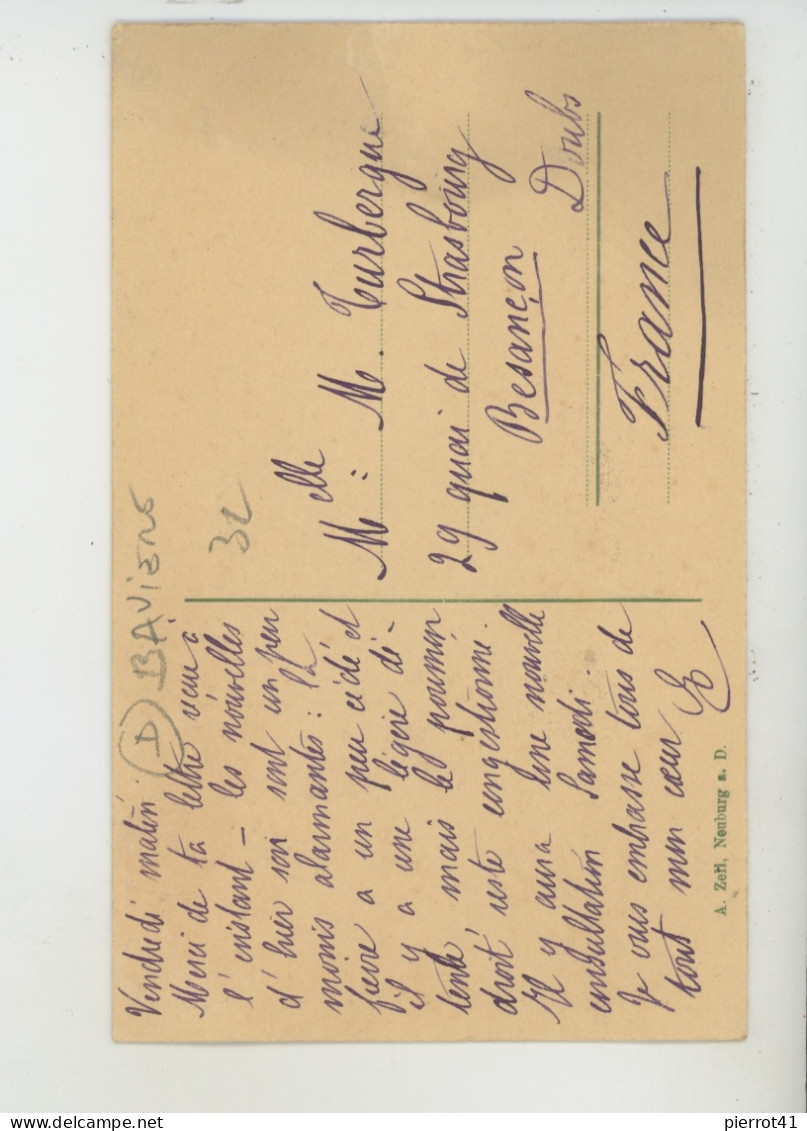 Vendredi matin.
Merci de ta lettre reçue à
l'instant – les nouvelles
d'hier soir sont un peu
moins alarmantes : la
fièvre a un peu cédé et
il y a une légère dé-
tente mais le poumon
droit reste congestionné.
Il y aura une nouvelle
consultation Samedi.
Je vous embrasse tous de
tout mon cœur
(D) BAVIERE
32
Melle : M. Turbergue
29 quai de Strasbourg
Besançon Doubs
France
A. Zeitl, Neuburg a. D.
pierrot41